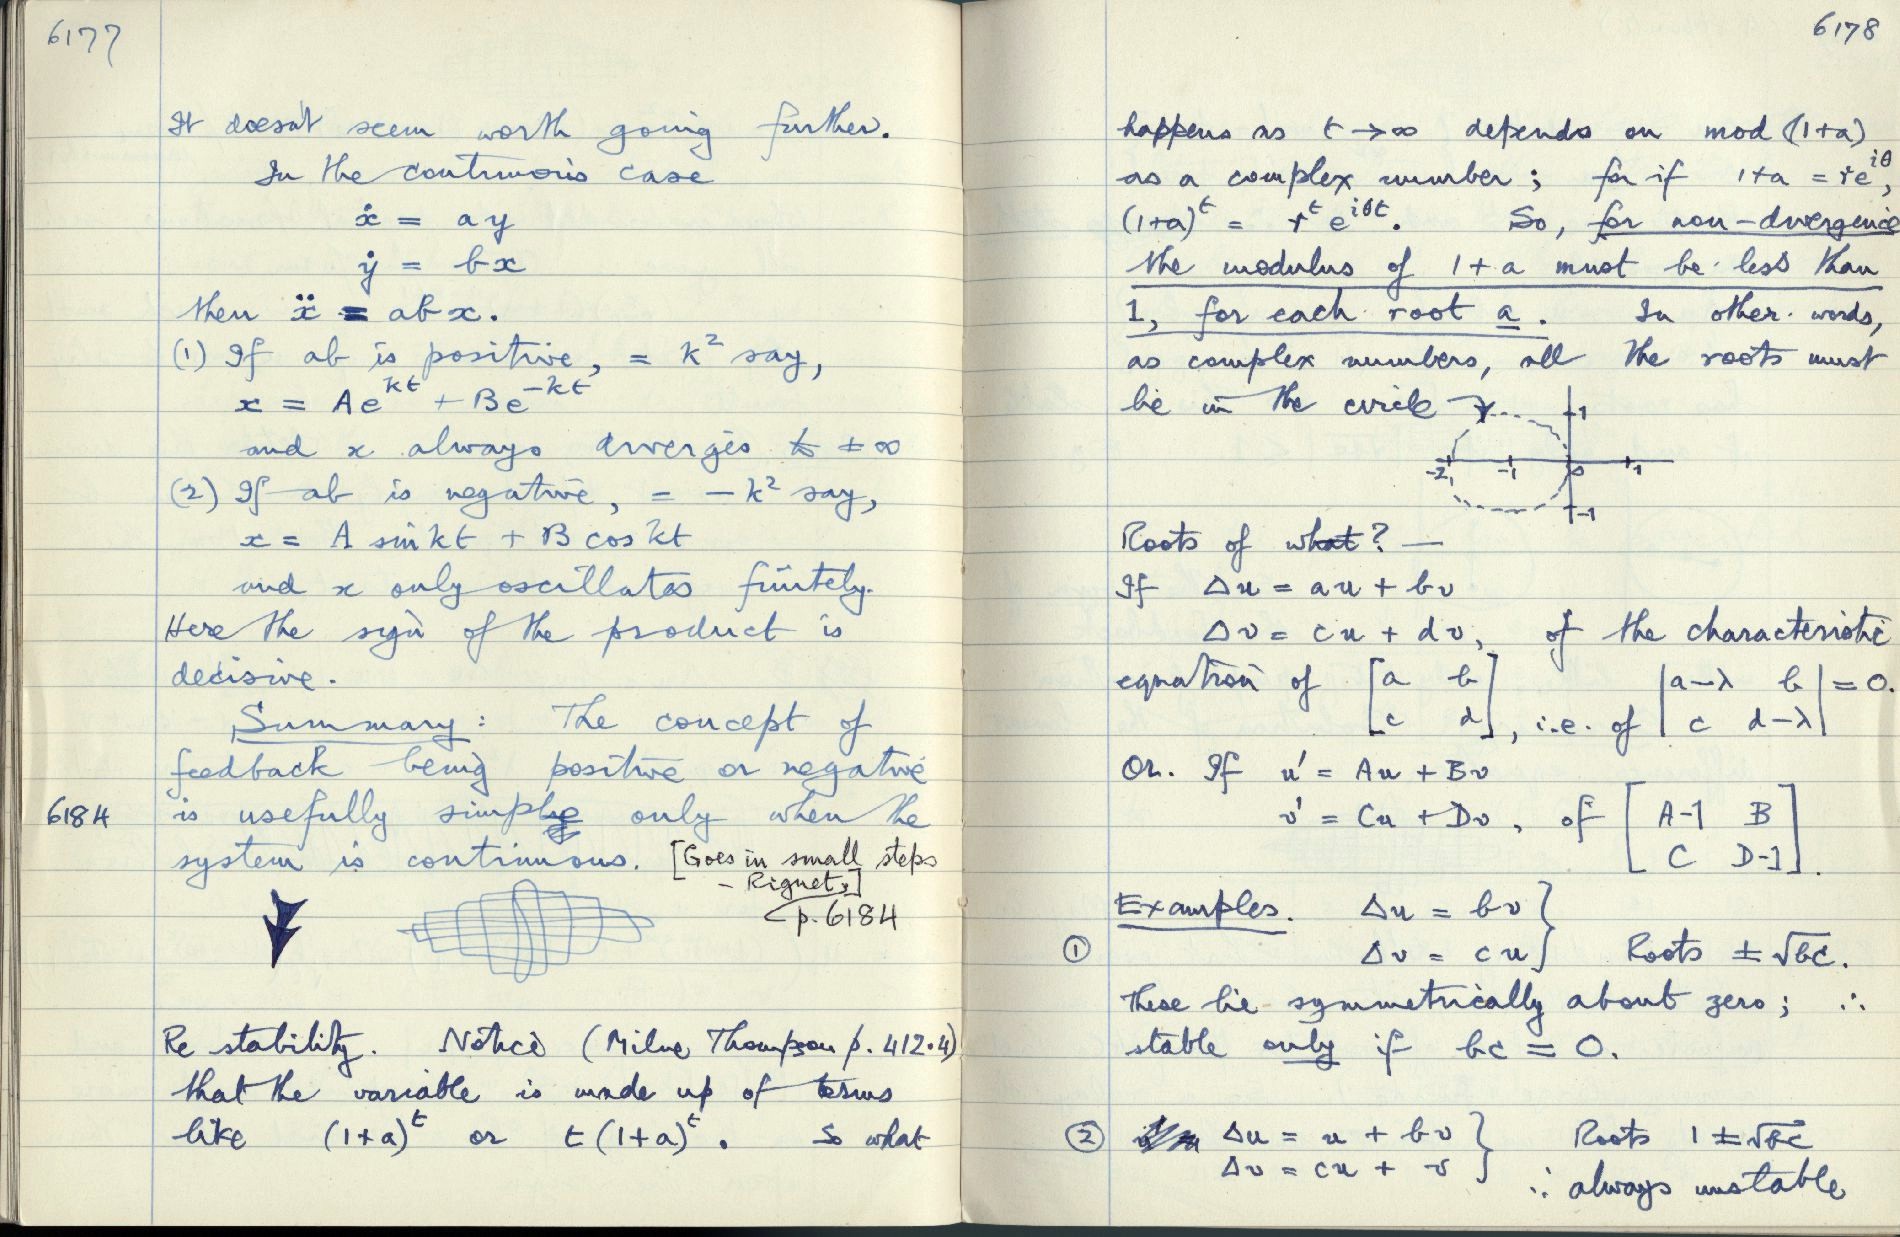 6177
It doesn't seem worth going further.
In the continuous case
ẋ = ay
ẏ = bx
then ẍ = abx.
(1) If ab is positive, = k² say,
x = Ae^kt + Be^-kt
and x always diverges to ±∞
(2) If ab is negative, = -k² say,
x = A sin kt + B cos kt
and x only oscillates finitely.
Here the sign of the product is
decisive.
Summary: The concept of
feedback being positive or negative
6184 is usefully simple only when the
system is continuous. [Goes in small steps
- Riguet,]
p. 6184
Re stability. Notice (Milne Thompson p. 412.4)
that the variable is made up of terms
like (1+a)^t or t(1+a)^t. So what
6178
happens as t→∞ depends on mod (1+a)
as a complex number; for if 1+a = re^iθ,
(1+a)^t = r^t e^iθt. So, for non-divergence
the modulus of 1+a must be less than
1, for each root a. In other words,
as complex numbers, all the roots must
lie in the circle
1
-2 -1 0 1
-1
Roots of what? —
If Δu = au + bv
Δv = cu + dv, of the characteristic
equation of [a b
c d], i.e. of |a-λ b
c d-λ| = 0.
Or. If u' = Au + Bv
v' = Cu + Dv, of [A-1 B
C D-1].
Examples. Δu = bv }
① Δv = cu } Roots ±√bc.
These lie symmetrically about zero; ∴
stable only if bc = 0.
② Δu = u + bv } Roots 1 ±√bc
Δv = cu + v }
∴ always unstable